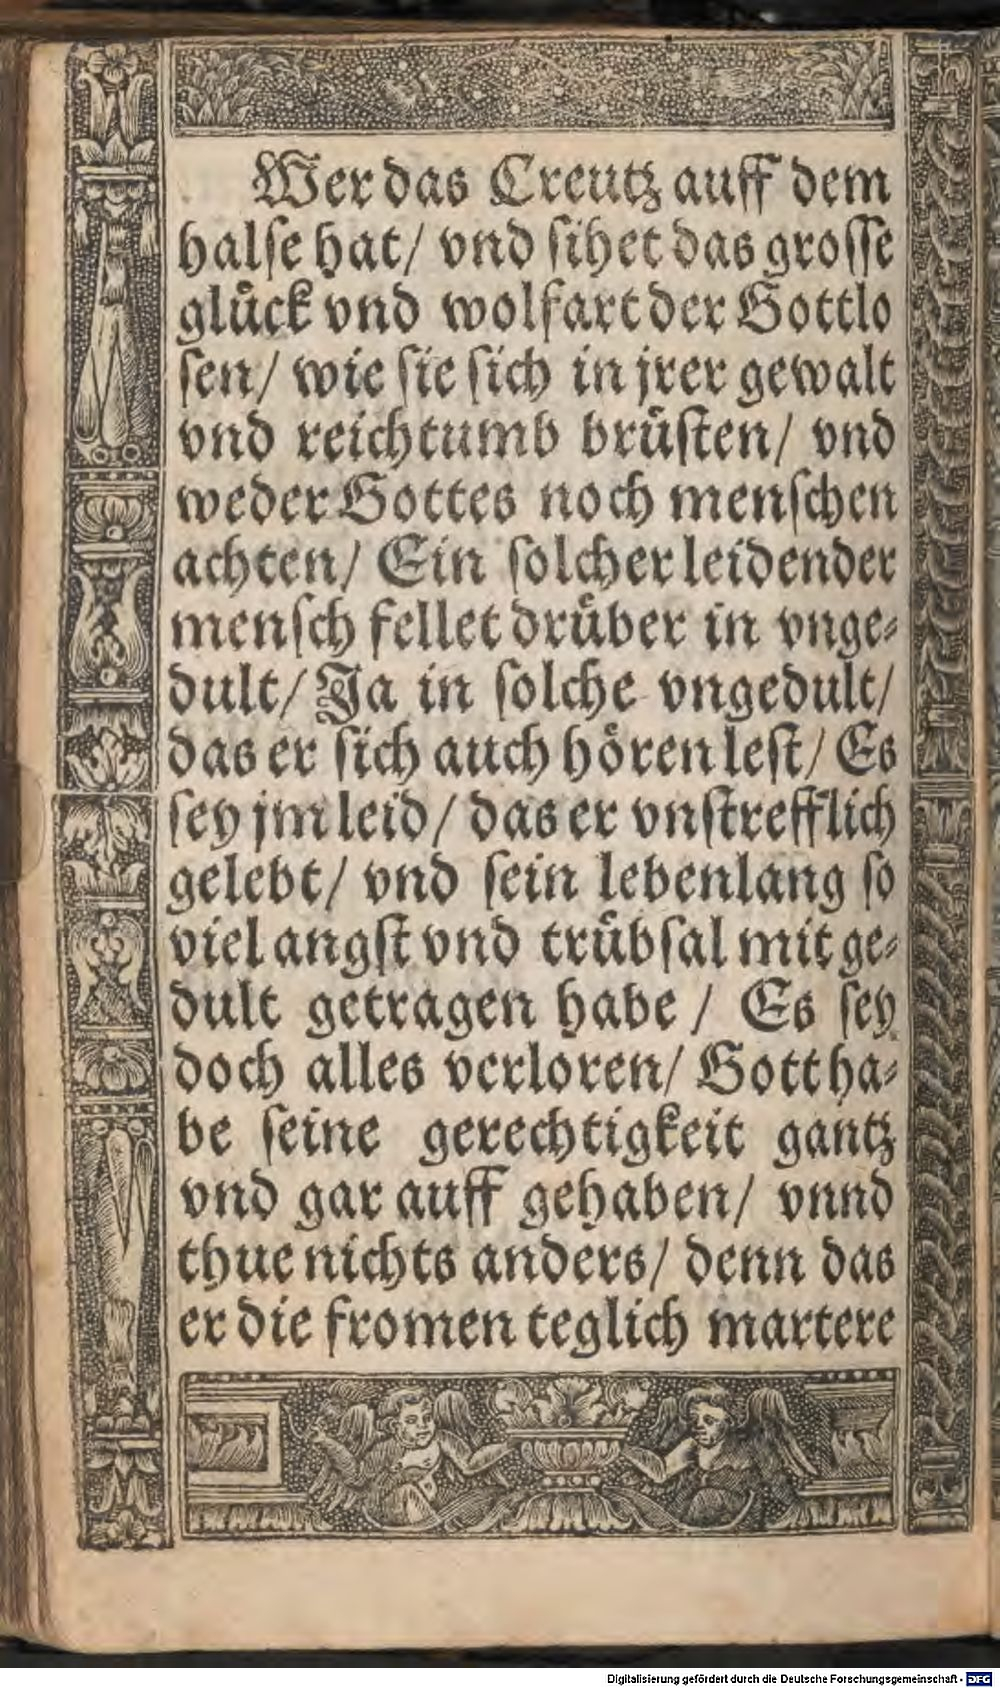 Wer das Creutz auff dem
halſe hat/ vnd ſihet das groſſe
gluͤck vnd wolfart der Gottlo
ſen/ wie ſie ſich in jrer gewalt
vnd reichtumb bruͤſten/ vnd
weder Gottes noch menſchen
achten/ Ein ſolcher leidender
menſch fellet druͤber in vnge⸗
dult/ Ja in ſolche vngedult/
das er ſich auch hoͤren leſt/ Es
ſey jm leid/ das er vnſtrefflich
gelebt/ vnd ſein lebenlang ſo
viel angſt vnd truͤbſal mit ge⸗
dult getragen habe/ Es ſey
doch alles verloren/ Gott ha⸗
be ſeine gerechtigkeit gantz
vnd gar auff gehaben/ vnnd
thue nichts anders/ denn das
er die fromen teglich martere
Digitalisierung gefördert durch die Deutsche Forschungsgemeinschaft - DFG